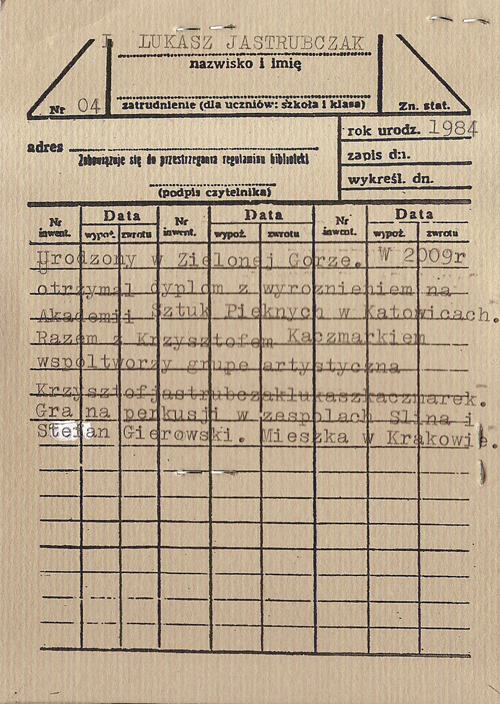 I LUKASZ JASTRUBCZAK
nazwisko i imię
Nr 04
zatrudnienie (dla uczniów: szkoła i klasa)
Zn. stat.
adres
Zobowiązuje się do przestrzegania regulaminu biblioteki
(podpis czytelnika)
rok urodz. 1984
zapis dn.
wykreśl. dn.
Nr inwent. Data wypoż. zwrotu Nr inwent. Data wypoż. zwrotu Nr inwent. Data wypoż. zwrotu
Urodzony w Zielonej Gorze. W 2009r
otrzymal dyplom z wyroznieniem na
Akademii Sztuk Pieknych w Katowicach.
Razem z Krzysztofem Kaczmarkiem
wspoltworzy grupe artystyczna
Krzysztofjastrubczaklukaszkaczmarek.
Gra na perkusji w zespolach Slina i
Stefan Gierowski. Mieszka w Krakowie.